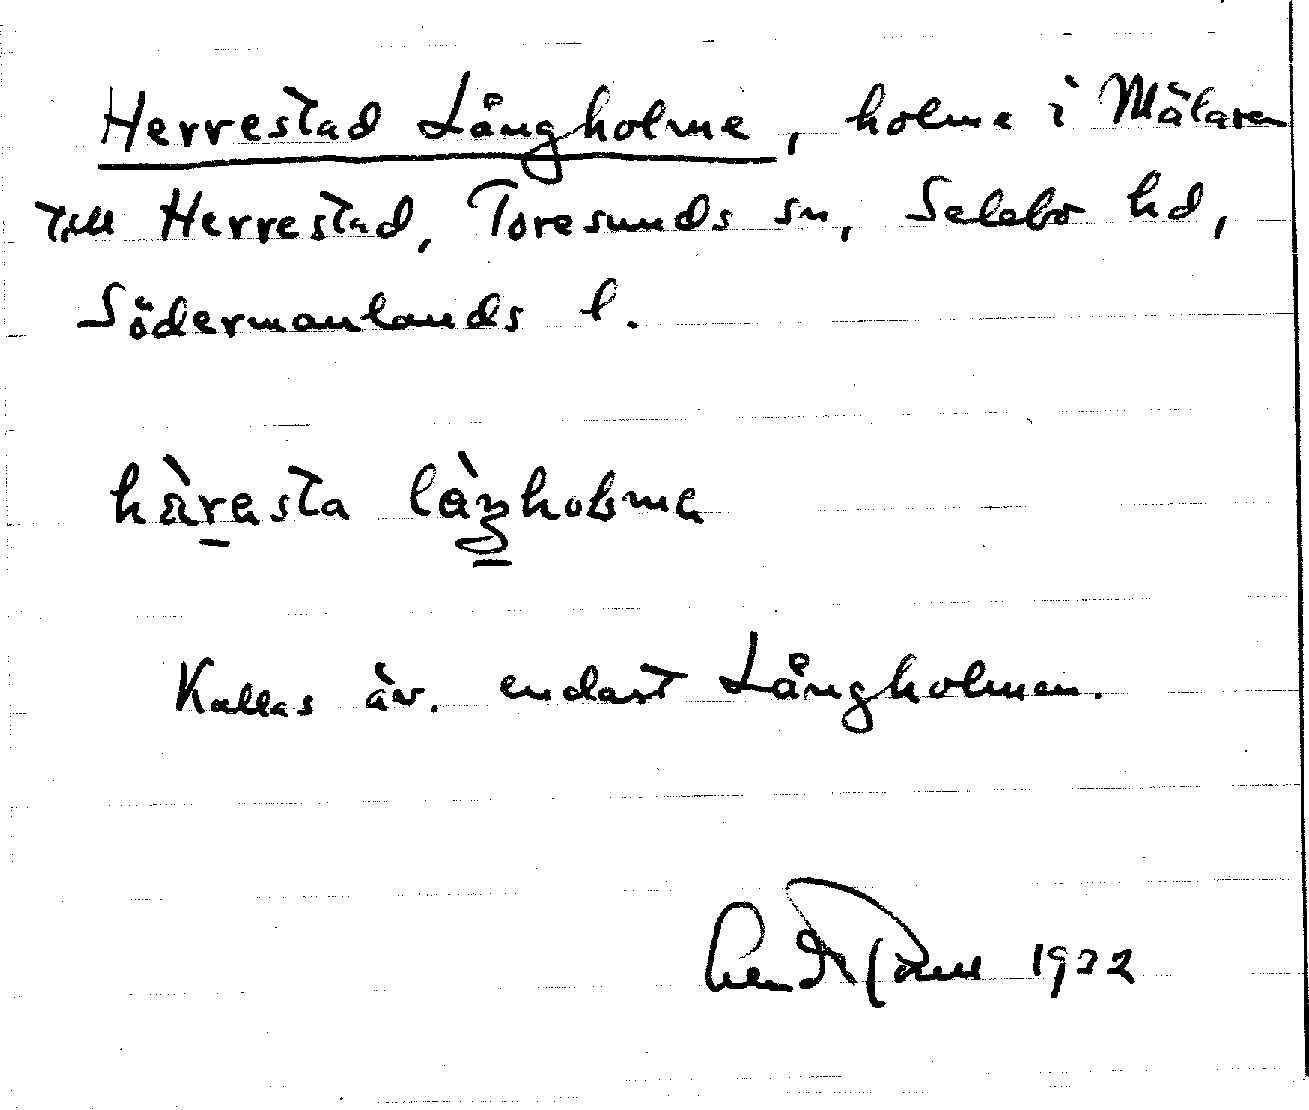 Herrestad Långholme, holme i Mälaren
till Herrestad, Toresunds sn, Selebo hd,
Södermanlands l.
hàresta làŋholma
Kallas äv. endast Långholmen.
1922